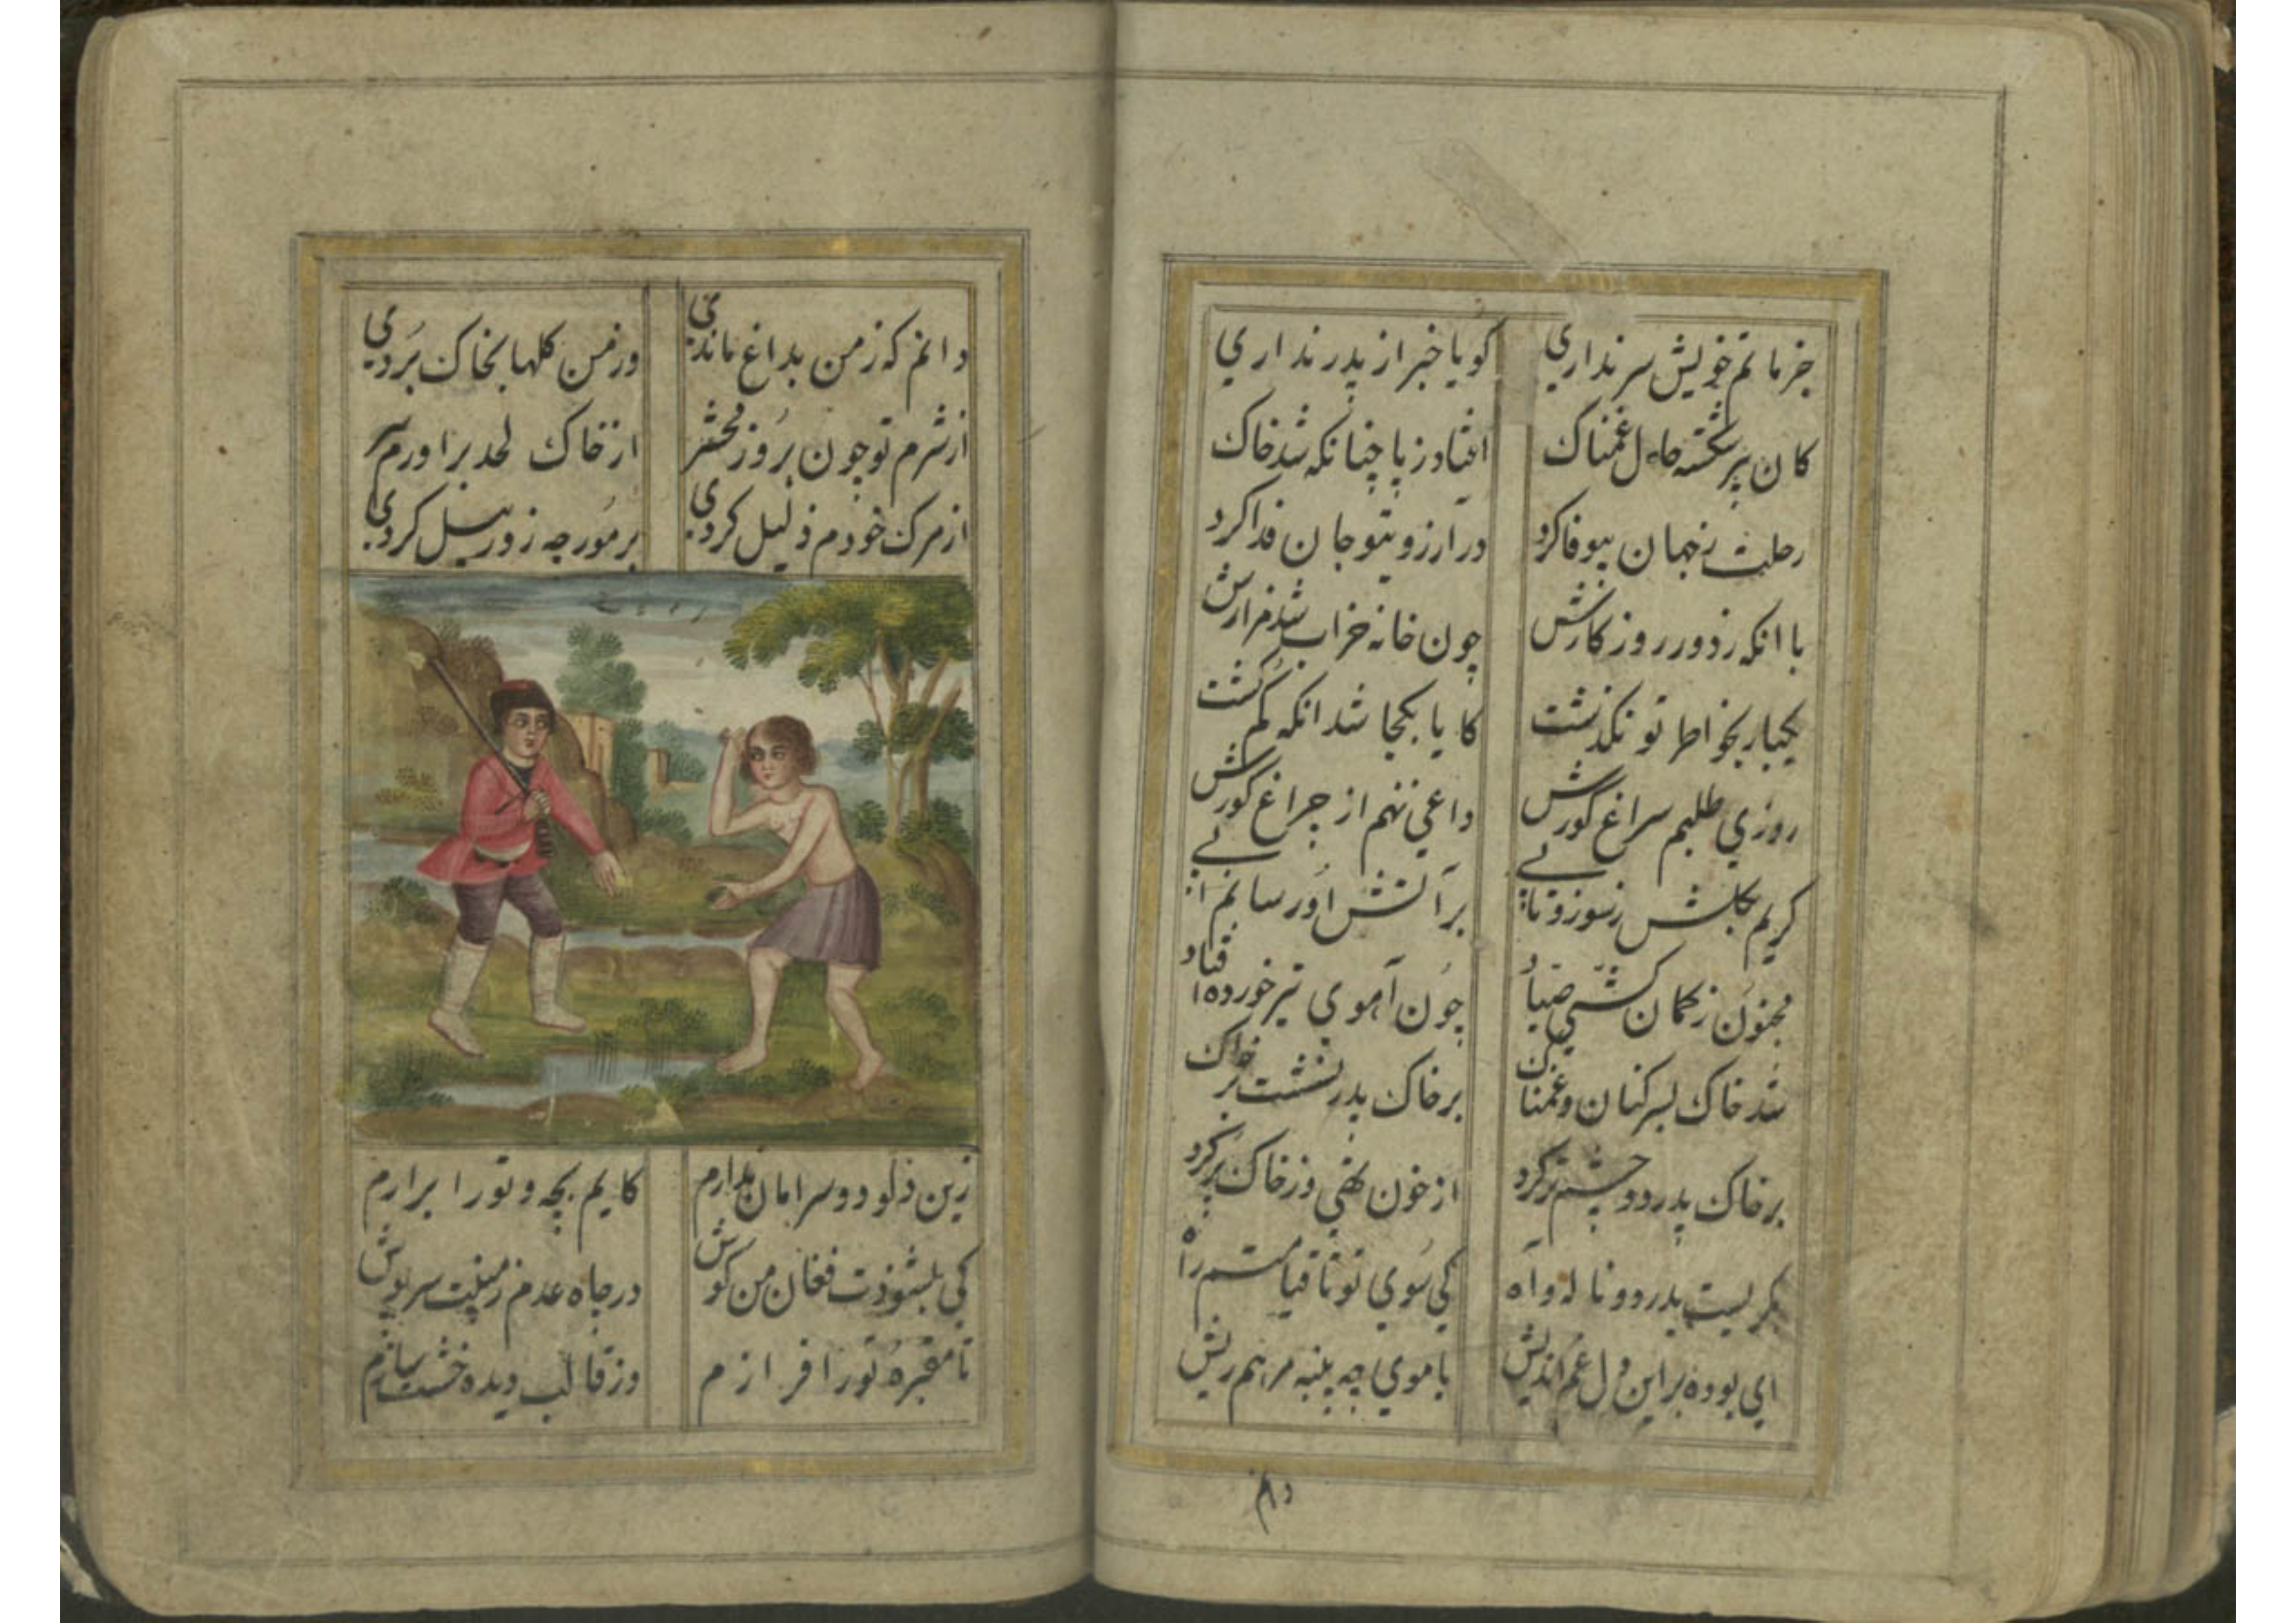 جز ماتم خویش سر نداري گویا خبر از پدر نداري
کان پیر شکسته حال غمناک افتاد ز پا چنانکه شد خاک
رحلت زجهان بیوفا کرد در ارزویتو جان فدا کرد
با انکه زدور روزکارش چون خانه خراب شد مزارش
یکبار بخواطر تو نکذشت کایا بکجا شد انکه کم کشت
روزي طلبم سراغ کورش داغي ننهم از چراغ کورش
کریم بکلش زسوز وتابي بر آتش اورسانم ابي
مجنون زکمان کشي صیاد چون آهوي تیر خورده افتاد
شد خاک بسر کنان وغمناک بر خاک پدر نشست بر خاک
بر خاک پدر دو چشم تر کرد از خون تهي وز خاک پر کرد
بکریست بدرد و ناله و آه کي سوي تو تا قیامتم راه
اي بوده براین دل غم اندیش با موي چه پنبه مرهم ریش
دانم
دانم که زمن بداغ ماندي وز من کلها بخاک بردي
از شرم تو چون بروز محشر از خاک لحد براورم سر
از مرک خودم ذلیل کردي بر مورچه زور پیل کردي
زین دلو دو سر امان ندارم کایم بچه و تورا برارم
کي بشنودت فغان من کوش در چاه عدم زمینت سرپوش
تا مقبره تورا فرازم وز قالب دیده خشت سازم